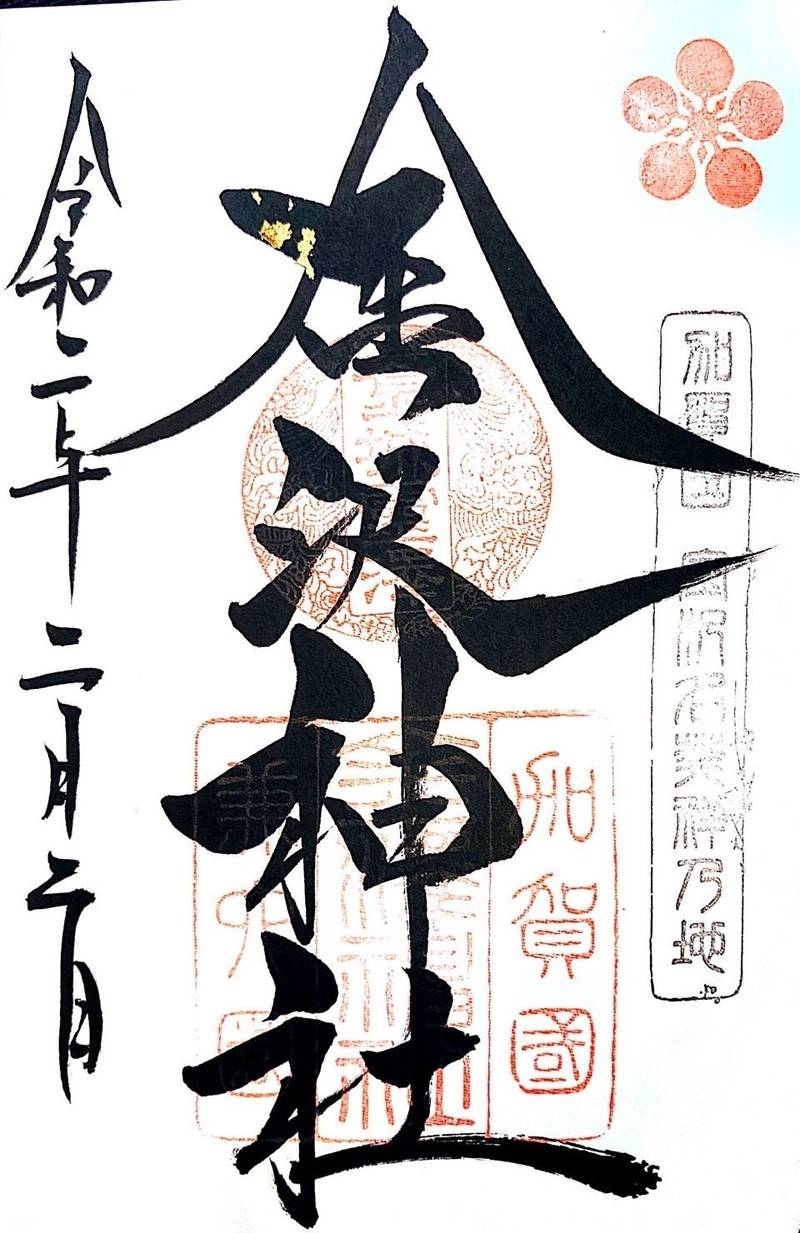 加賀國 金沢名発祥乃地
金沢神社
加賀國
兼六園
令和二年 二月 二日